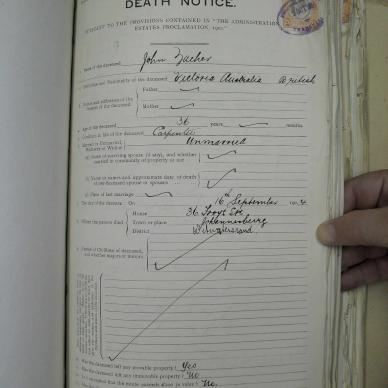 DEATH NOTICE.
PURSUANT TO THE PROVISIONS CONTAINED IN "THE ADMINISTRATION
ESTATES PROCLAMATION, 1902."
Name of the deceased John
Birthplace and Nationality of the deceased Victoria Australia British
Names and addresses of the
Parents of the deceased
Father
Mother
Age of the deceased 36 years months
Condition in life of the deceased Carpenter
Married or Unmarried,
Widower or Widow Unmarried
(a) Name of surviving spouse (if any), and whether
married in community of property or not
(b) Name or names and approximate date of death
of pre-deceased spouse or spouses
(c) Place of last marriage
The day of the decease On 16th September 190
Where the person died
House 36
Town or place Johannesburg
District Witwatersrand
Names of Children of deceased,
and whether majors or minors
Has the deceased left any movable property? Yes
Has the deceased left any immovable property? No
Is it estimated that the estate exceeds £300 in value? No